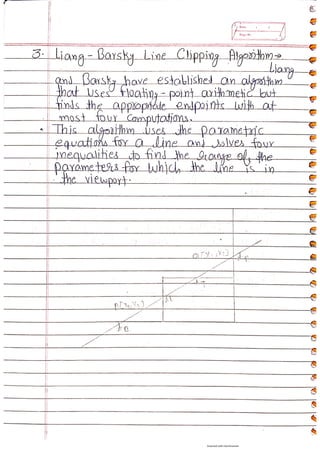 3. Liang-Barsky Line Clipping Algorithm→
Liang
and Barsky have established an algorithm
that uses floating-point arithmetic but
finds the appropriate endpoints with at
most four computations.
• This algorithm uses the parametric
equations for a line and solves four
inequalities to find the range of the
parameters for which the line is in
the viewport.